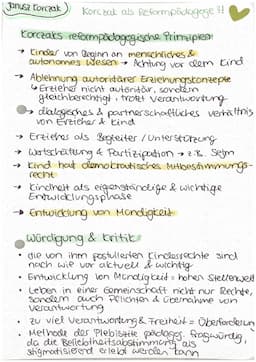 Janusz Korczak
Korczak als Reformpädagoge !!
Korczaks reformpädagogische Prinzipien
→ Kinder von Beginn an menschliches &
autonomes Wesen → Achtung vor dem Kind
→ Ablehnung autoritärer Erziehungskonzepte
↳ Erzieher nicht autoritär, sondern
gleichberechtigt, trotz Verantwortung
→ dialogisches & partnerschaftliches Verhältnis
von Erzieher & Kind
→ Erzieher als Begleiter / Unterstützung
→ Wertschätzung & Partizipation → z.B. Sejm
→ Kind hat demokratisches Mitbestimmungs-
recht
→ Kindheit als eigenständige & wichtige
Entwicklungsphase
→ Entwicklung von Mündigkeit
Würdigung & Kritik
• die von ihm postulierten Kinderrechte sind
nach wie vor aktuell & wichtig
• Entwicklung von Mündigkeit = hohen Stellenwert
• Leben in einer Gemeinschaft nicht nur Rechte,
sondern auch Pflichten & Übernahme von
Verantwortung
• zu viel Verantwortung & Freiheit = Überforderung
• Methode der Plebiszite pädagog. fragwürdig,
da die Beliebtheitsabstimmung als
stigmatisierend erlebt werden kann